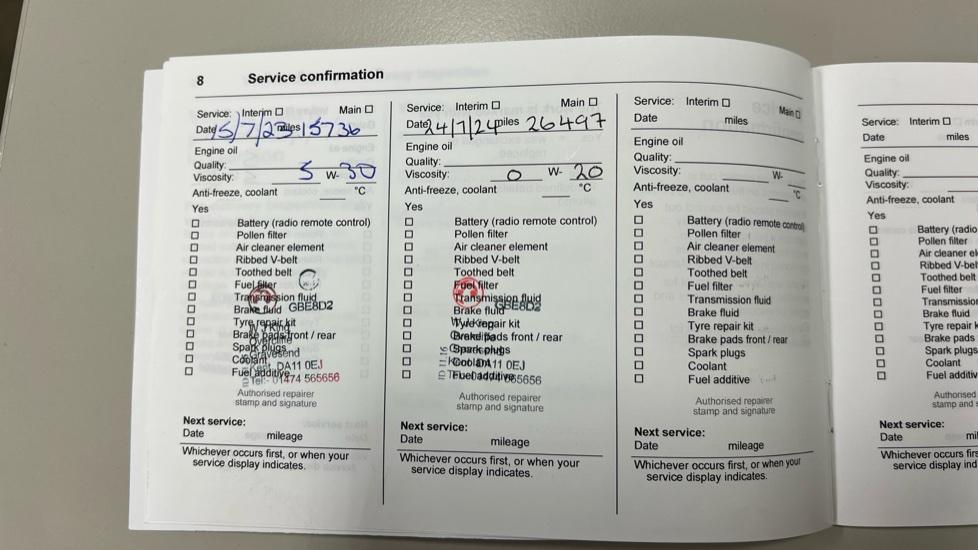 8 Service confirmation
Service: Interim ☐ Main ☐
Date 15/7/23 miles 15736
Engine oil
Quality:
Viscosity: 5 W- 30
Anti-freeze, coolant °C
Yes
☐ Battery (radio remote control)
☐ Pollen filter
☐ Air cleaner element
☐ Ribbed V-belt
☐ Toothed belt
☐ Fuel filter
☐ Transmission fluid
☐ Brake fluid GBE8D2
☐ Tyre repair kit
W J King
☐ Brake pads front / rear
Overcliffe
☐ Spark plugs
Gravesend
☐ Coolant
Kent DA11 0EJ
☐ Fuel additive
Tel:- 01474 565656
Authorised repairer
stamp and signature
Next service:
Date mileage
Whichever occurs first, or when your
service display indicates.
Service: Interim ☐ Main ☐
Date 24/7/24 miles 26497
Engine oil
Quality:
Viscosity: 0 W- 20
Anti-freeze, coolant °C
Yes
☐ Battery (radio remote control)
☐ Pollen filter
☐ Air cleaner element
☐ Ribbed V-belt
☐ Toothed belt
☐ Fuel filter
☐ Transmission fluid
☐ Brake fluid GBE8D2
☐ Tyre repair kit
W J King
☐ Brake pads front / rear
☐ Spark plugs
☐ Coolant
Kent DA11 0EJ
☐ Fuel additive
Authorised repairer
stamp and signature
Next service:
Date mileage
Whichever occurs first, or when your
service display indicates.
Service: Interim ☐ Main ☐
Date miles
Engine oil
Quality:
Viscosity: W-
Anti-freeze, coolant °C
Yes
☐ Battery (radio remote control)
☐ Pollen filter
☐ Air cleaner element
☐ Ribbed V-belt
☐ Toothed belt
☐ Fuel filter
☐ Transmission fluid
☐ Brake fluid
☐ Tyre repair kit
☐ Brake pads front / rear
☐ Spark plugs
☐ Coolant
☐ Fuel additive
Authorised repairer
stamp and signature
Next service:
Date mileage
Whichever occurs first, or when your
service display indicates.
Service: Interim ☐
Date miles
Engine oil
Quality:
Viscosity:
Anti-freeze, coolant
Yes
☐ Battery (radio
☐ Pollen filter
☐ Air cleaner el
☐ Ribbed V-bel
☐ Toothed belt
☐ Fuel filter
☐ Transmission
☐ Brake fluid
☐ Tyre repair k
☐ Brake pads
☐ Spark plugs
☐ Coolant
☐ Fuel additiv
Authorised
stamp and s
Next service:
Date mil
Whichever occurs firs
service display ind